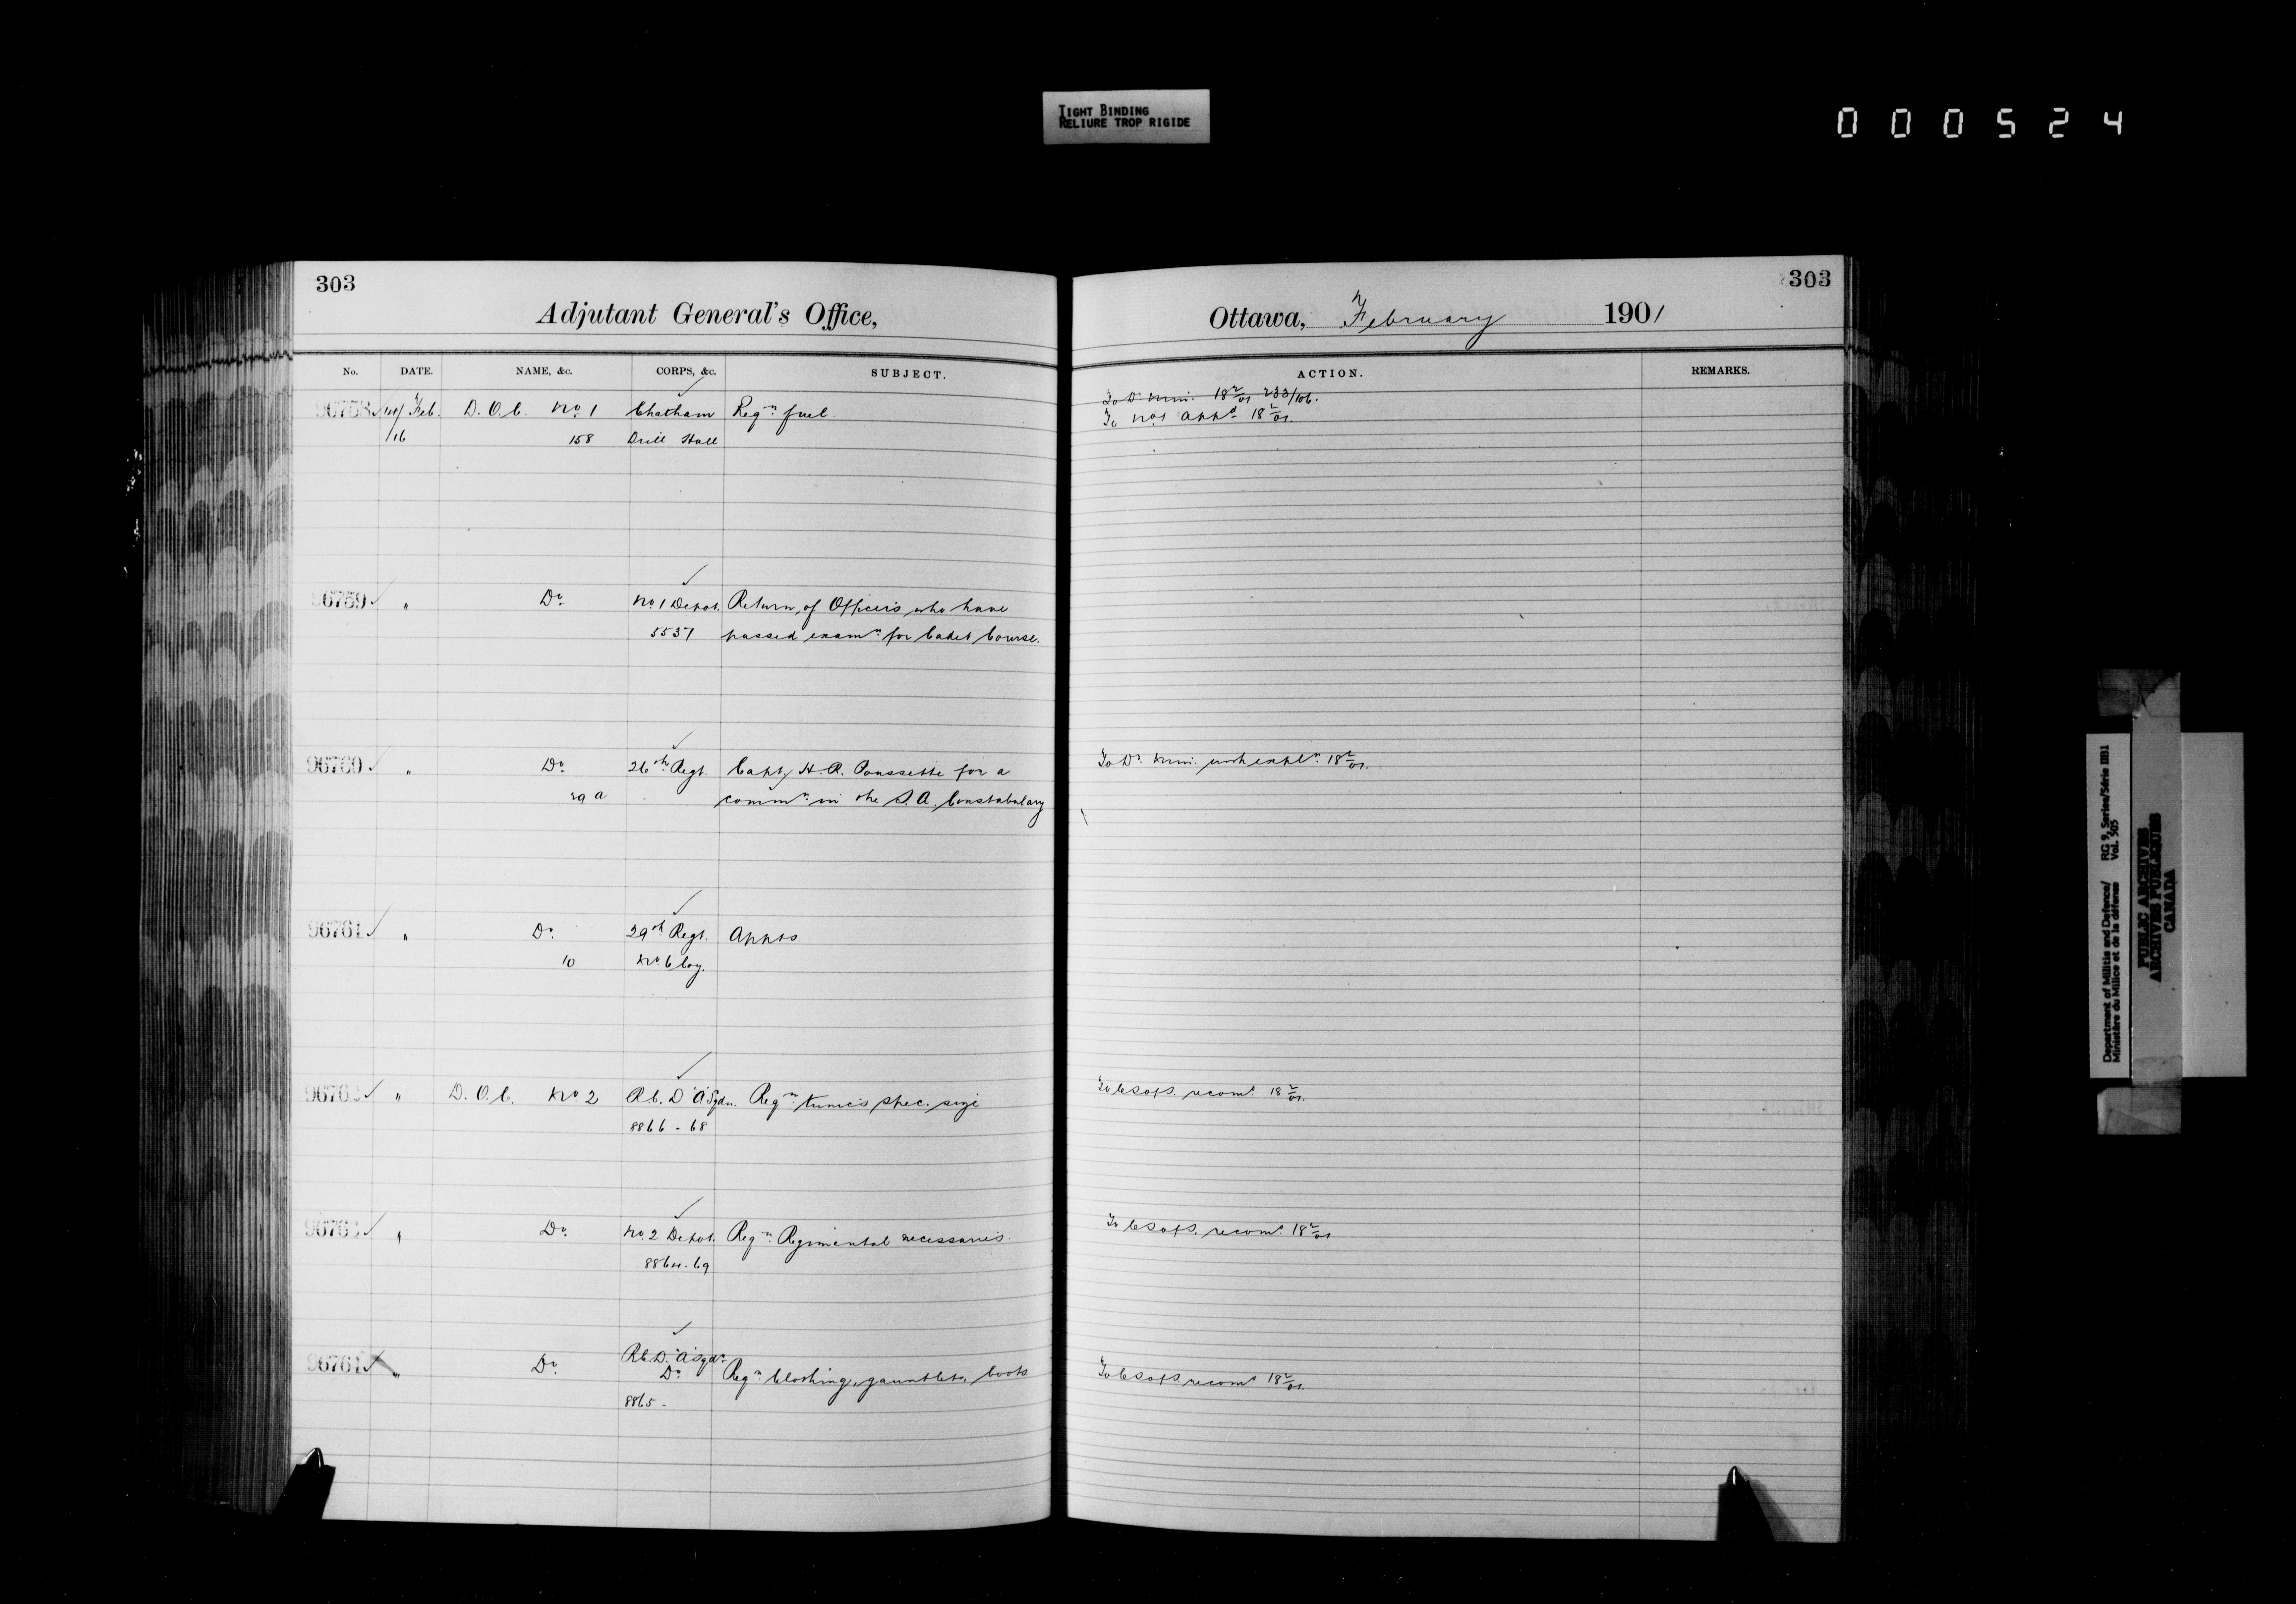 TIGHT BINDING
RELIURE TROP RIGIDE
000524
303
Adjutant General's Office,
No. DATE. NAME, &c. CORPS, &c. SUBJECT.
96758 Feb. D.O.C. No. 1 Chatham Reqn. fuel
/16 158 Drill Hall
96759 " Do. No. 1 Depot. Return of Officers who have
5537 passed examn. for Cadet Course.
96760 " Do. 26th Regt. Capt. H.R. Poussette for a
29 a commn. in the S.A. Constabulary
96761 " Do. 29th Regt. Appts
10 No. 6 Coy.
9676 " D.O.C. No 2 R.C.D. "A" Sqdn. Reqn. tunics spec. size
8866 - 68
9676 " Do. No. 2 Depot. Reqn. Regimental necessaries.
8864 - 69
R.C.D. "A" Sqdn.
9676 " Do. Do. Reqn. Clothing, gauntlets, boots
8865 -
303
Ottawa, February 1901
ACTION. REMARKS.
To D. Min. 18 2/01 233/106.
To No 1 appd. 18 2/01.
To D. Min. with expln. 18 2/01.
To C S of S. recomd. 18 2/01.
To C S of S. recomd. 18 2/01
To C S of S recomd. 18 2/01.
Department of Militia and Defence/ RG 9, Series/Série IIB1
Ministère du Milice et de la défense Vol. 505
PUBLIC ARCHIVES
ARCHIVES PUBLIQUES
CANADA